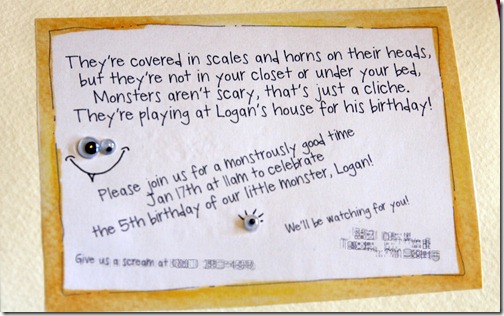 They're covered in scales and horns on their heads,
but they're not in your closet or under your bed,
Monsters aren't scary, that's just a cliche.
They're playing at Logan's house for his birthday!
Please join us for a monstrously good time
Jan 17th at 11am to celebrate
the 5th birthday of our little monster, Logan!
We'll be watching for you!
Give us a scream at